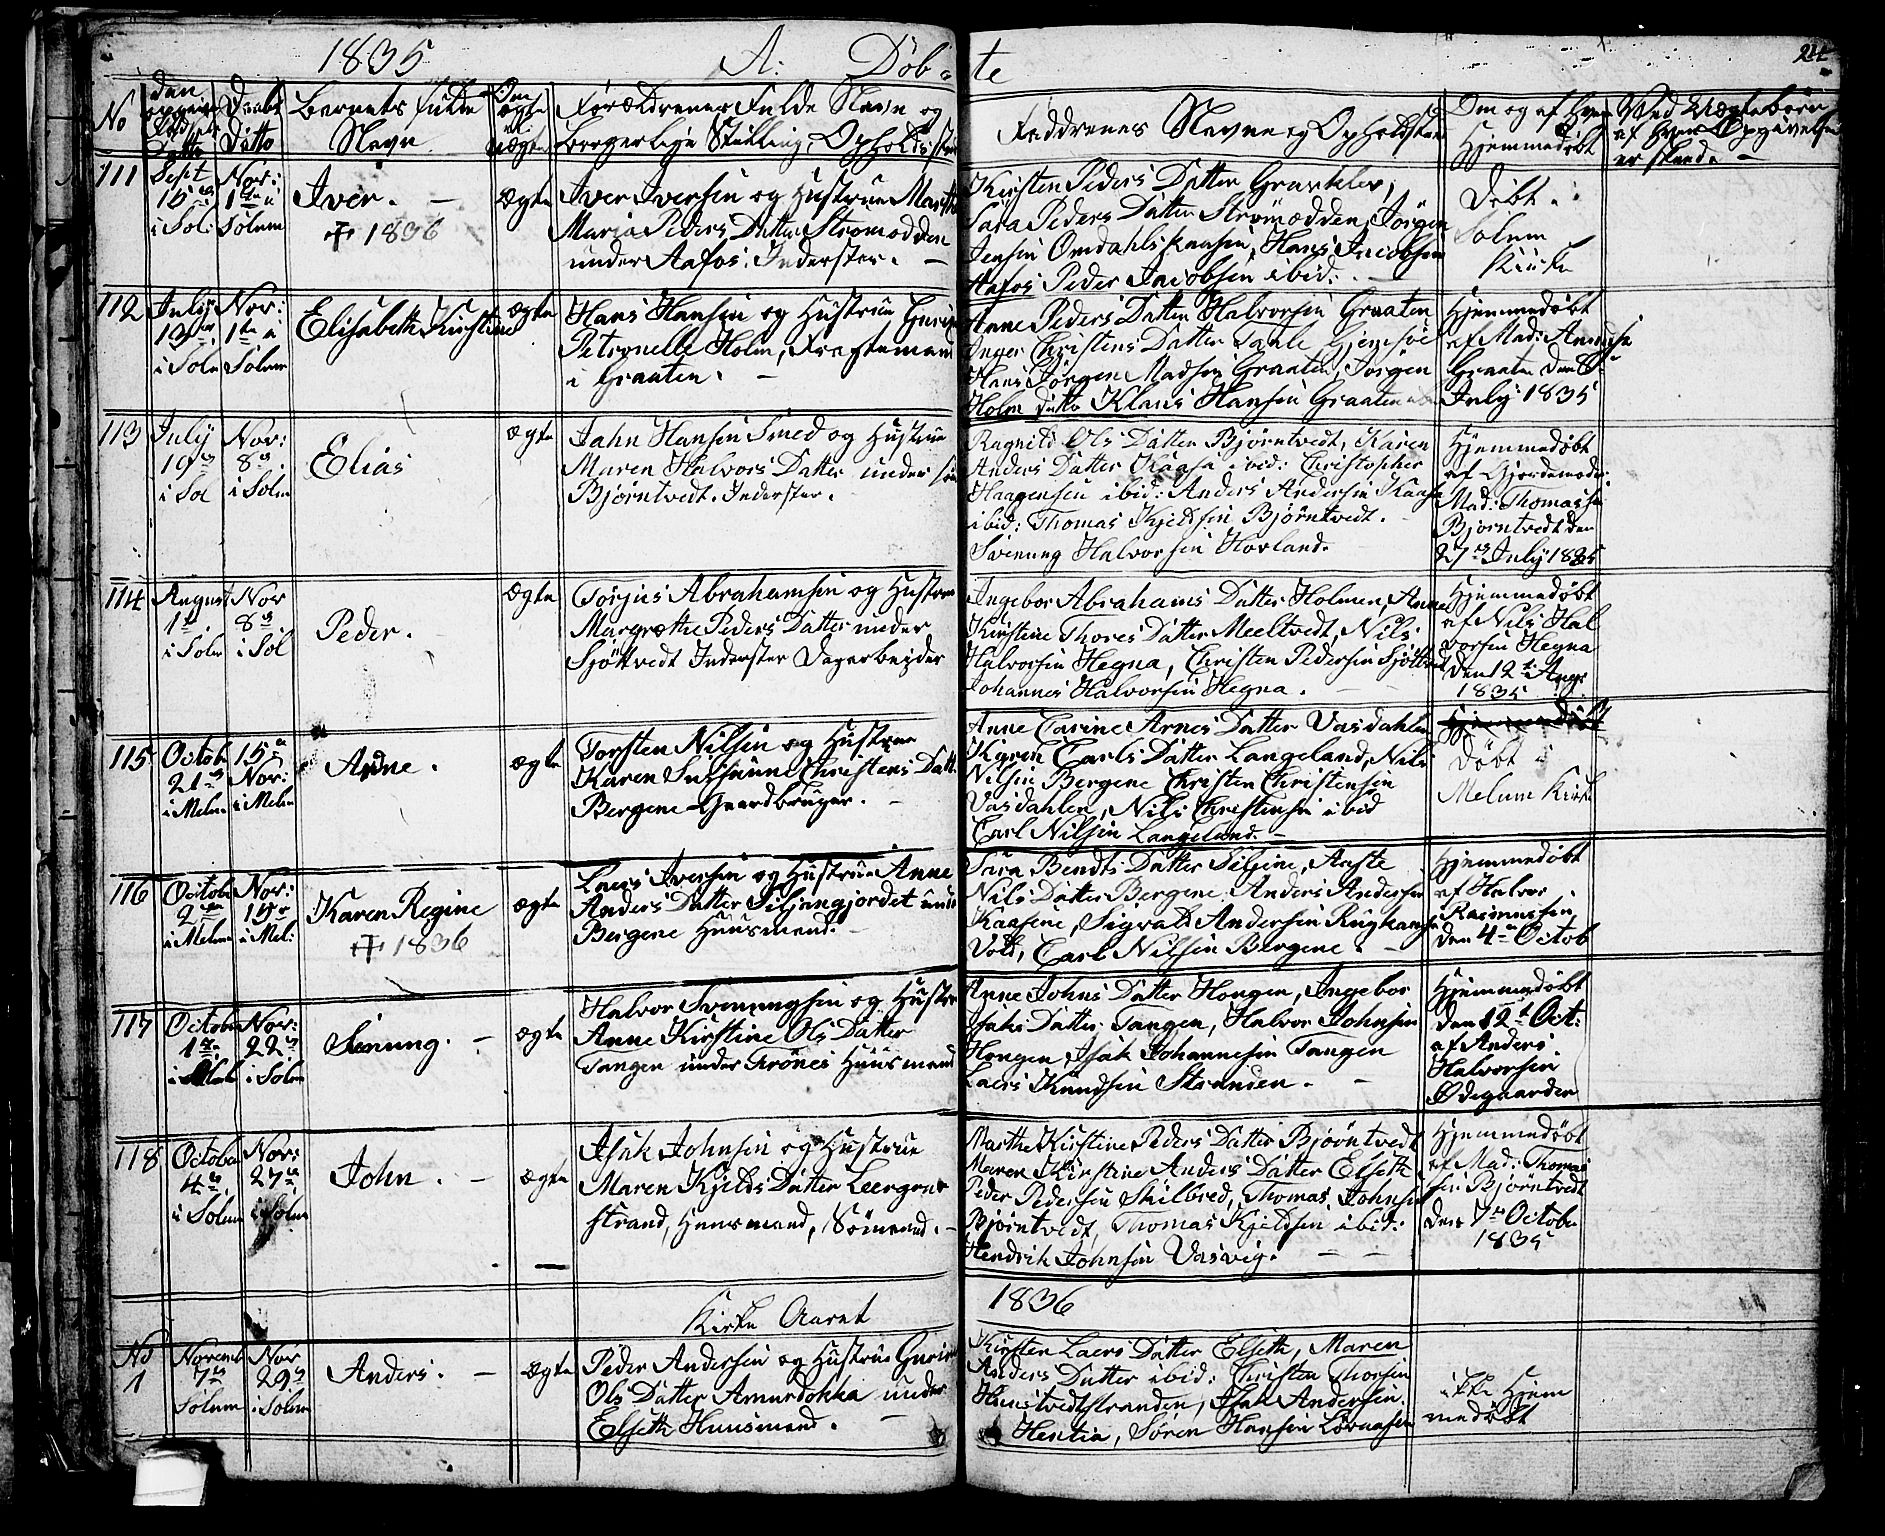 1835 A: Döb-te 24
No
den
Daabs
Ditto
Barnets fulde
Navn.
Om
ægte
el:
uægte
Forældrenes Fulde Navn og
borgerlige Stilling, Opholdssted
Faddrenes Navne og Opholdsted
Om og af hvem
Hjemmedöbt
Ved Uægtebörn
af hver Opgivelse
er skeed. -
111
Sept
15de
i Sol:
Nov:
1ste i
Solum
Iver. -
✝ 1836
Ægte
Iver Iversen og Hustrue Marthe
Maria Peders Datter Strømodden
under Aafos. Inderster. -
Kirsten Peders Datter
Sara Peders Datter Strømodden, Jörgen
Jensen Omdahlskaasen, Hans Jacobsen
Aafos Peder Jacobsen ibid:
Döbt i
Solum
Kirke
112
July
19de
i Solm
Nov:
1ste i
Solum
Elisabeth Kirstine
ægte
Hans Hansen og Hustrue
Petronelle Holm, Fragtemand
i Graaten. -
Anne Peders Datter Halvorsen Graaten
Inger Christens Datter Gjemsöe
Hans Jörgen Madsen Graaten, Jörgen
Holm ditto Klaus Hansen Graaten
Hjemmedöbt
af Mad:
Graaten den
July 1835
113
July
19de
i Sol
Nov:
8de
i Solm
Elias
ægte
Jahn Hansen Smed og Hustrue
Maren Halvors Datter under
Bjørntvedt. Inderster.
Ragnild Ols Datter Bjørntvedt, Karen
Anders Datter Kaasa ibid: Christopher
Haagensen ibid: Anders Andersen Kaasa
ibid: Thomas Kjeldsen Bjørntvedt.
Svenung Halvorsen Hovland.
Hjemmedöbt
af Gjordemoder
Mad: Thomassen
Bjørntvedt den
27de July 1835
114
August
1ste
i Solm
Nov
8de
i Sol
Peder.
Ægte
Torjus Abrahamsen og Hustrue
Margrethe Peders Datter under
Sjöttvedt Inderster Dagarbejder
Ingebor Abrahams Datter Holmen, Anne
Kirstine Thores Datter Meeltvedt, Nils
Halvorsen Hegna, Christen Pedersen
Johannes Halvorsen Hegna.
Hjemmedöbt
af Nils Hal
vorsen Hegna
den 12te Aug:
1835
115
Octob
21de
i Melm
15de
Nov:
i Melm
Anne.
ægte
Torsten Nilsen og Hustrue
Karen Susanne Christens Datt
Bergene Gaardbruger.
Anne Carine Arnes Datter Vasdahlen
Karen Carls Datter Langeland, Nils
Nilsen Bergene Christen Christensen
Vasdahlen, Nils Christensen ibid
Carl Nilsen Langeland. -
Hjemmedöbt
Döbt i
Melum Kirke
116
Octobr
2den
i Melm
Nov:
15de
i Mel:
Karen Regine
✝ 1836
ægte
Lars Iversen og Hustrue Anne
Anders Datter Siljangjordet under
Bergene Huusmand.
Sara Bendts Datter Siljine, Anste
Nils Datter Bergene. Anders Andersen
Kaasene, Sigvald Andersen
Vold, Carl Nilsen Bergene. -
Hjemmedöbt
af Halvor
Rasmussen
den 4de Octob
117
Octobr
1ste
i Solm
Nov:
22de
i Solm
Sinung. -
ægte
Halvor Svenungsen og Hustrue
Anne Kirstine Ols Datter
Tangen under Grönes Huusmand
Anne Johns Datter Hongen, Ingebor
Isaks Datter Tangen, Halvor Johnsen
Hongen, Isak Johannesen Tangen
Lars Knudsen Stranden. -
Hjemmedöbt
den 12te Oct:
af Anders
Halvorsen
Ødegaarden
118
Octobr
4de
i Solum
Nov:
27de
i Solm
John. -
ægte
Isak Johnsen og Hustrue
Maren Kjelds Datter
strand, Huusmand, Sömand. -
Marthe Kirstine Peders Datter Bjørntvedt
Maren Kirstine Anders Datter Elseth
Peder Pedersen Skilbred, Thomas Johnsen
Bjørntvedt, Thomas Kjeldsen ibid:
Hendrik Johnsen Vasvig. -
Hjemmedöbt
af Mad: Thomas
sen Bjørntvedt
den 7de Octobr
1835
Kirke Aaret 1836
No
1
Novemb
7de
Solum
Nov
29de
i Solm
Anders. -
ægte
Peder Andersen og Hustrue
Ols Datter Amurdokka under
Elseth Huusmand. -
Kirsten Lars Datter Elseth, Maren
Anders Datter ibid: Christen Thorsen
Knistvedtstranden, Isak Andersen
Hentia, Sören Hansen
ikke Hjem
medöbt